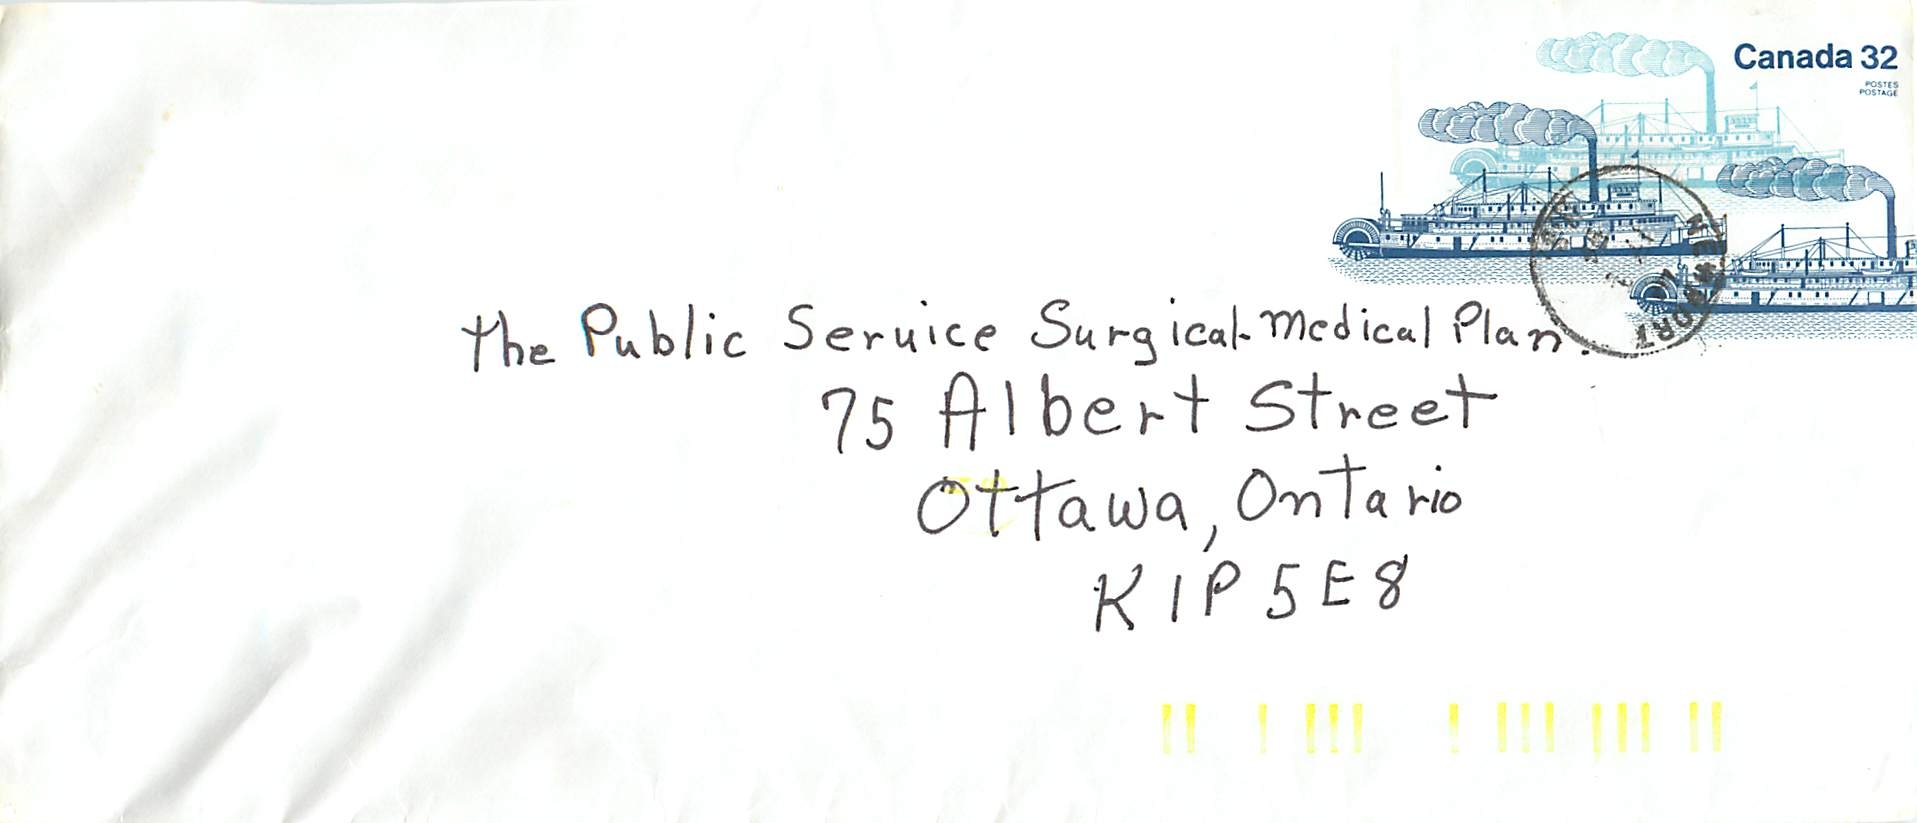 Canada 32
POSTES
POSTAGE
The Public Service Surgical-Medical Plan.
75 Albert Street
Ottawa, Ontario
K1P 5E8